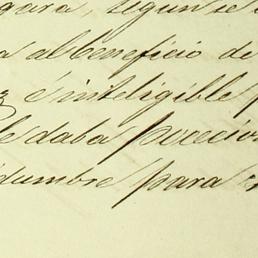 gura, segun se
a al beneficio de
é inteligible p
le daba perecio
idumbre para